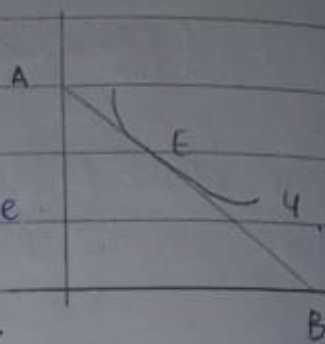 A
E
e
4
B